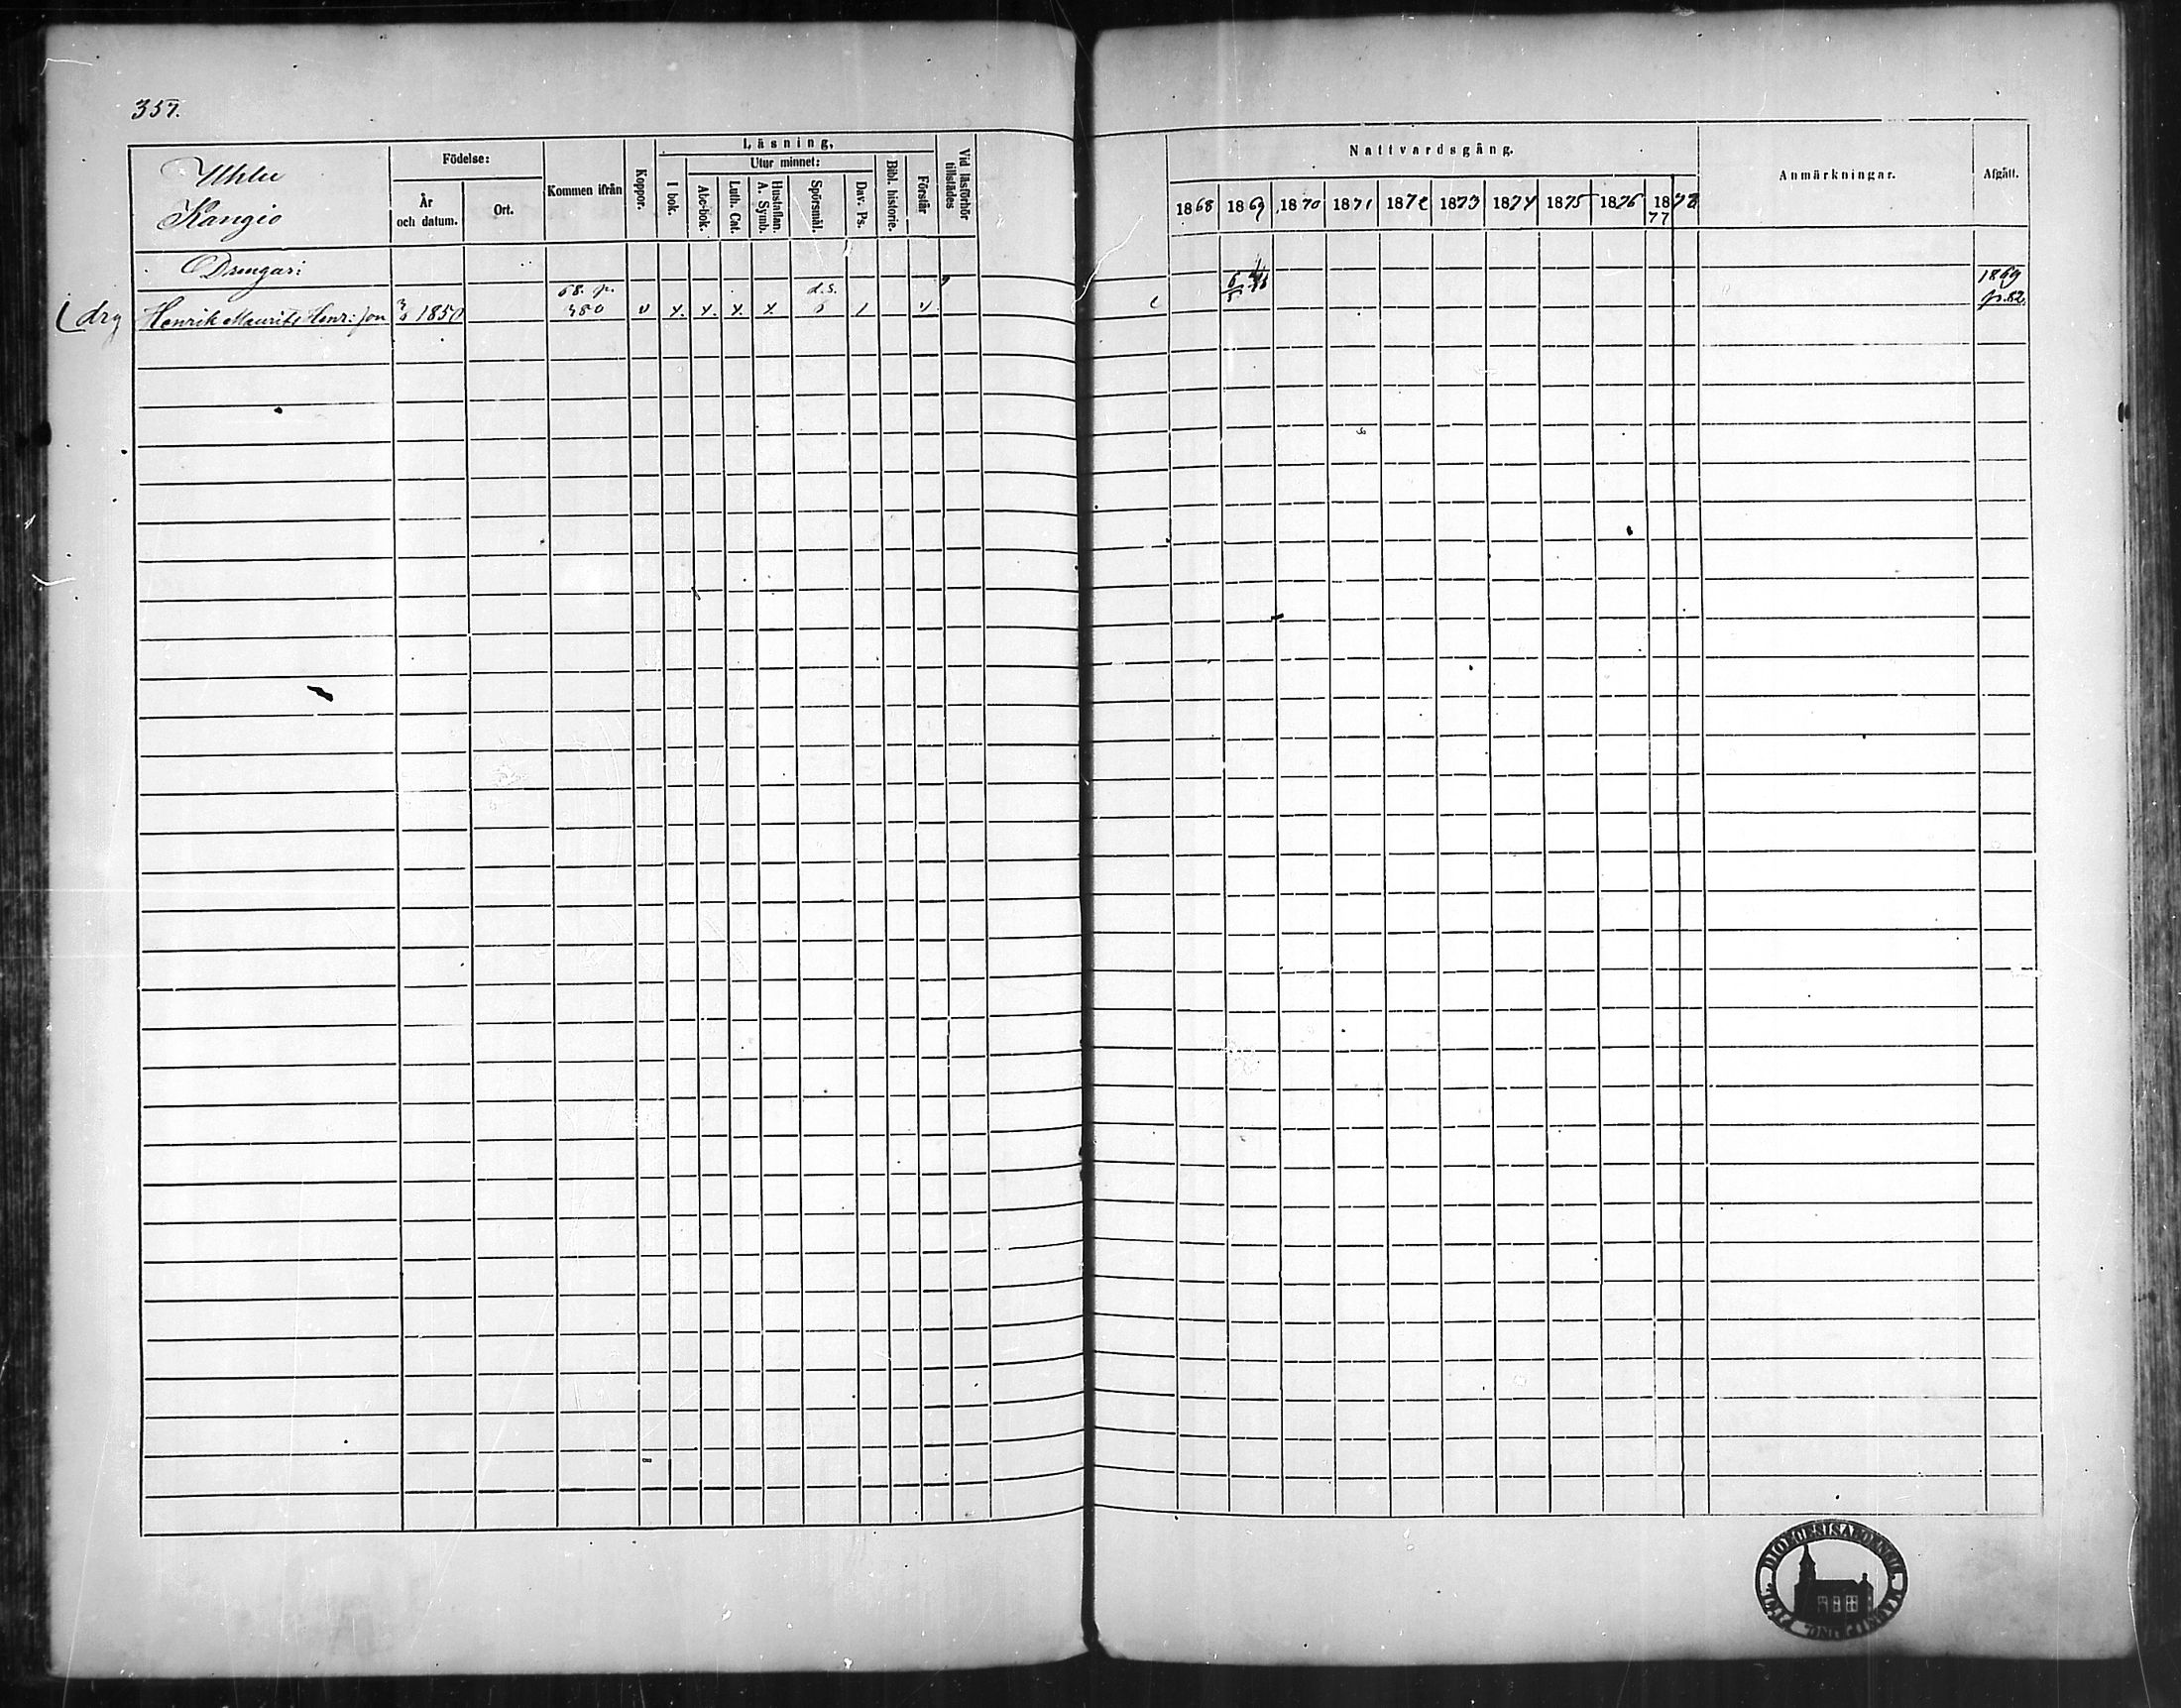 357.
Uhlu
Kangio
Födelse:
År
och datum.
Ort.
Kommen ifrån
Koppor.
Läsning,
I bok.
Utur minnet:
Abc-bok.
Luth. Cat.
Hustaflan.
A. Symb.
Spörsmål.
Dav. Ps.
Bibl. historie.
Förstår
Vid läsförhör
tillstädes
Nattvardsgång.
1868 1869 1870 1871 1872 1873 1874 1875 1876 1877 78
Anmärkningar.
Afgått.
Drengar:
68. p. d.s. 1869
(drg Henrik Maurits Henr:son 1850 380 p.82.